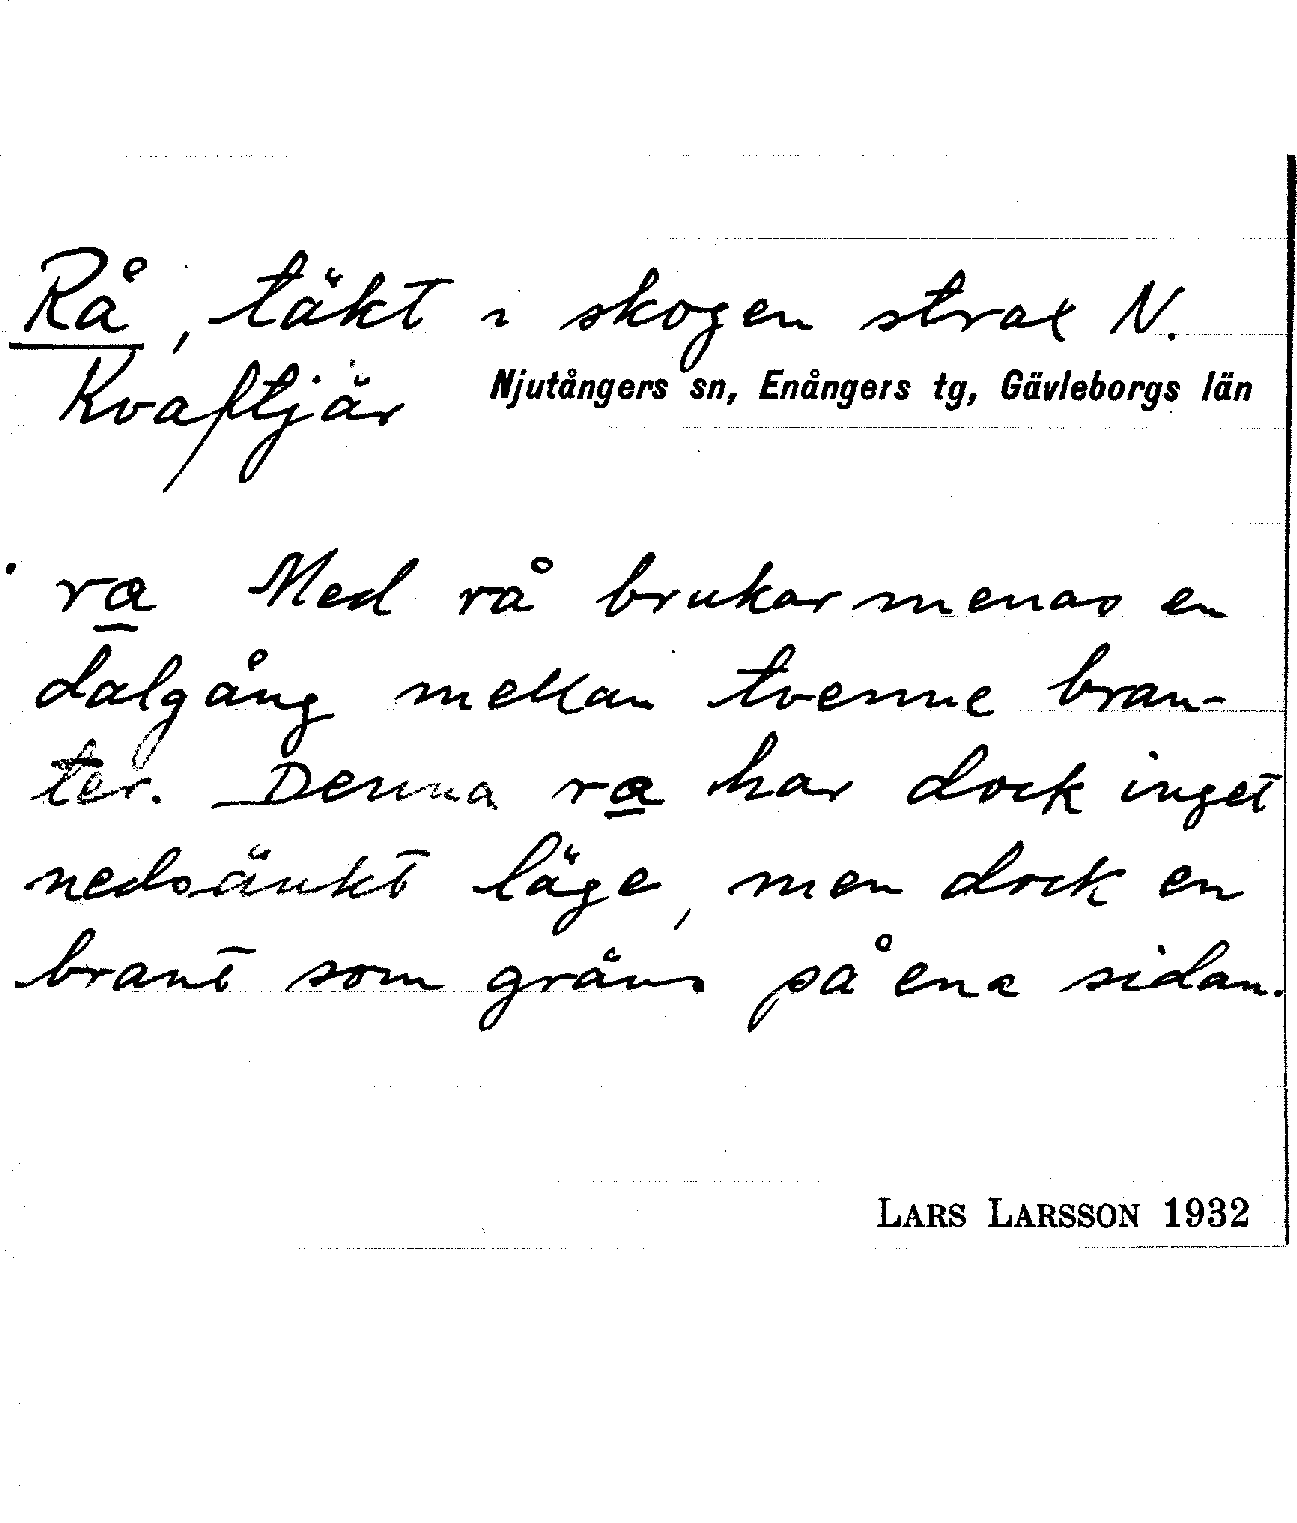 Rå, täkt i skogen strax N.
Kvaftjär Njutångers sn, Enångers tg, Gävleborgs län
ra̲ Med rå brukar menas en
dalgång mellan tvenne bran-
ter. Denna ra̲ har dock inget
nedsänkt läge, men dock en
brant som gräns på ena sidan.
LARS LARSSON 1932